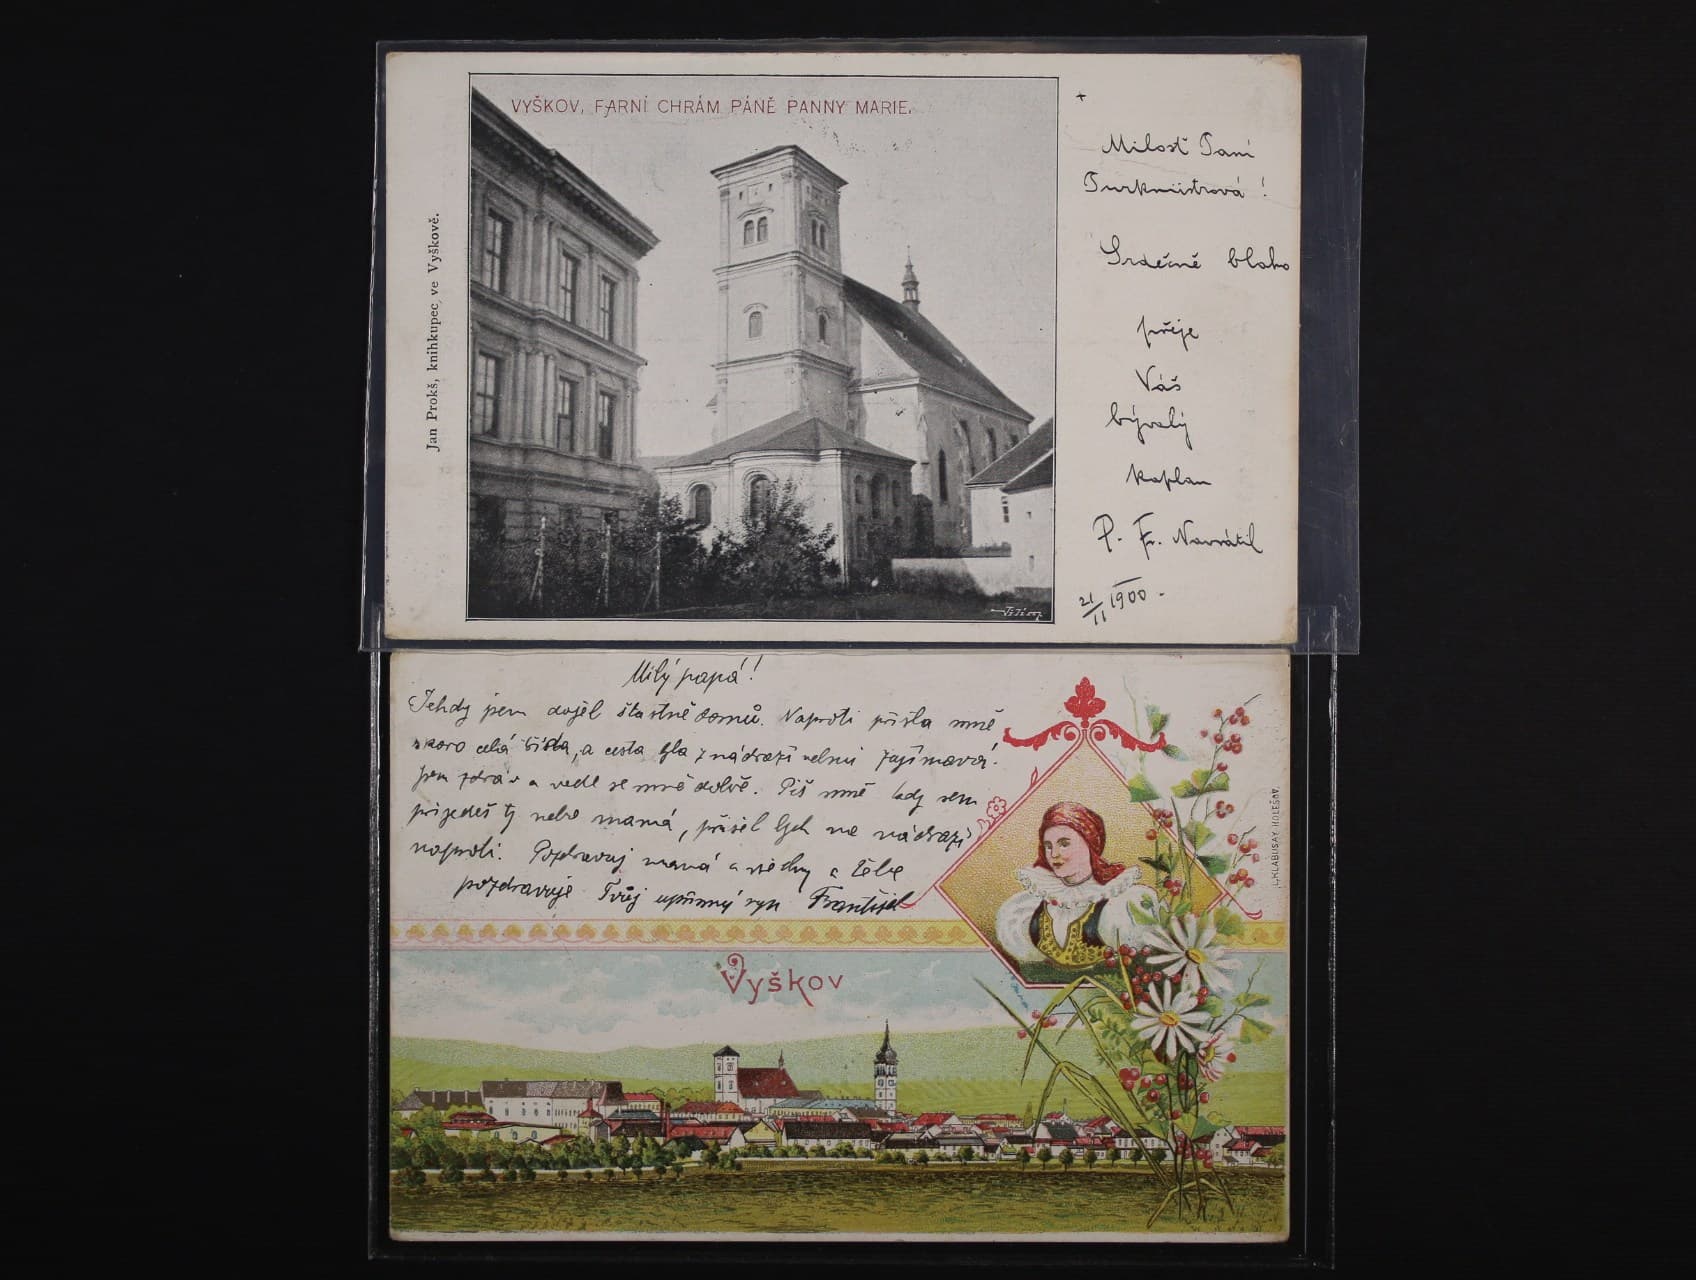 VYŠKOV, FARNÍ CHRÁM PÁNĚ PANNY MARIE.
Jan Prokš, knihkupec, ve Vyškově.
Milosť Paní
Purkmistrová!
Srdečné blaho
přeje
Váš
bývalý
kaplan
P. Fr. Navrátil
21/11 1900.
Milý papá!
Tehdy jsem dojel šťastně domů. Naproti přišla mně
skoro celá třída, a cesta byla z nádraží velmi zajímavá.
Jsem zdráv a vede se mně dobře. Piš mně kdy sem
přijedeš ty nebo mamá, přišel bych na nádraží
naproti. Pozdravuj mamá a všechny a Tebe
pozdravuje Tvůj upřímný syn František
L. KLABUSAY HOLEŠOV.
Vyškov